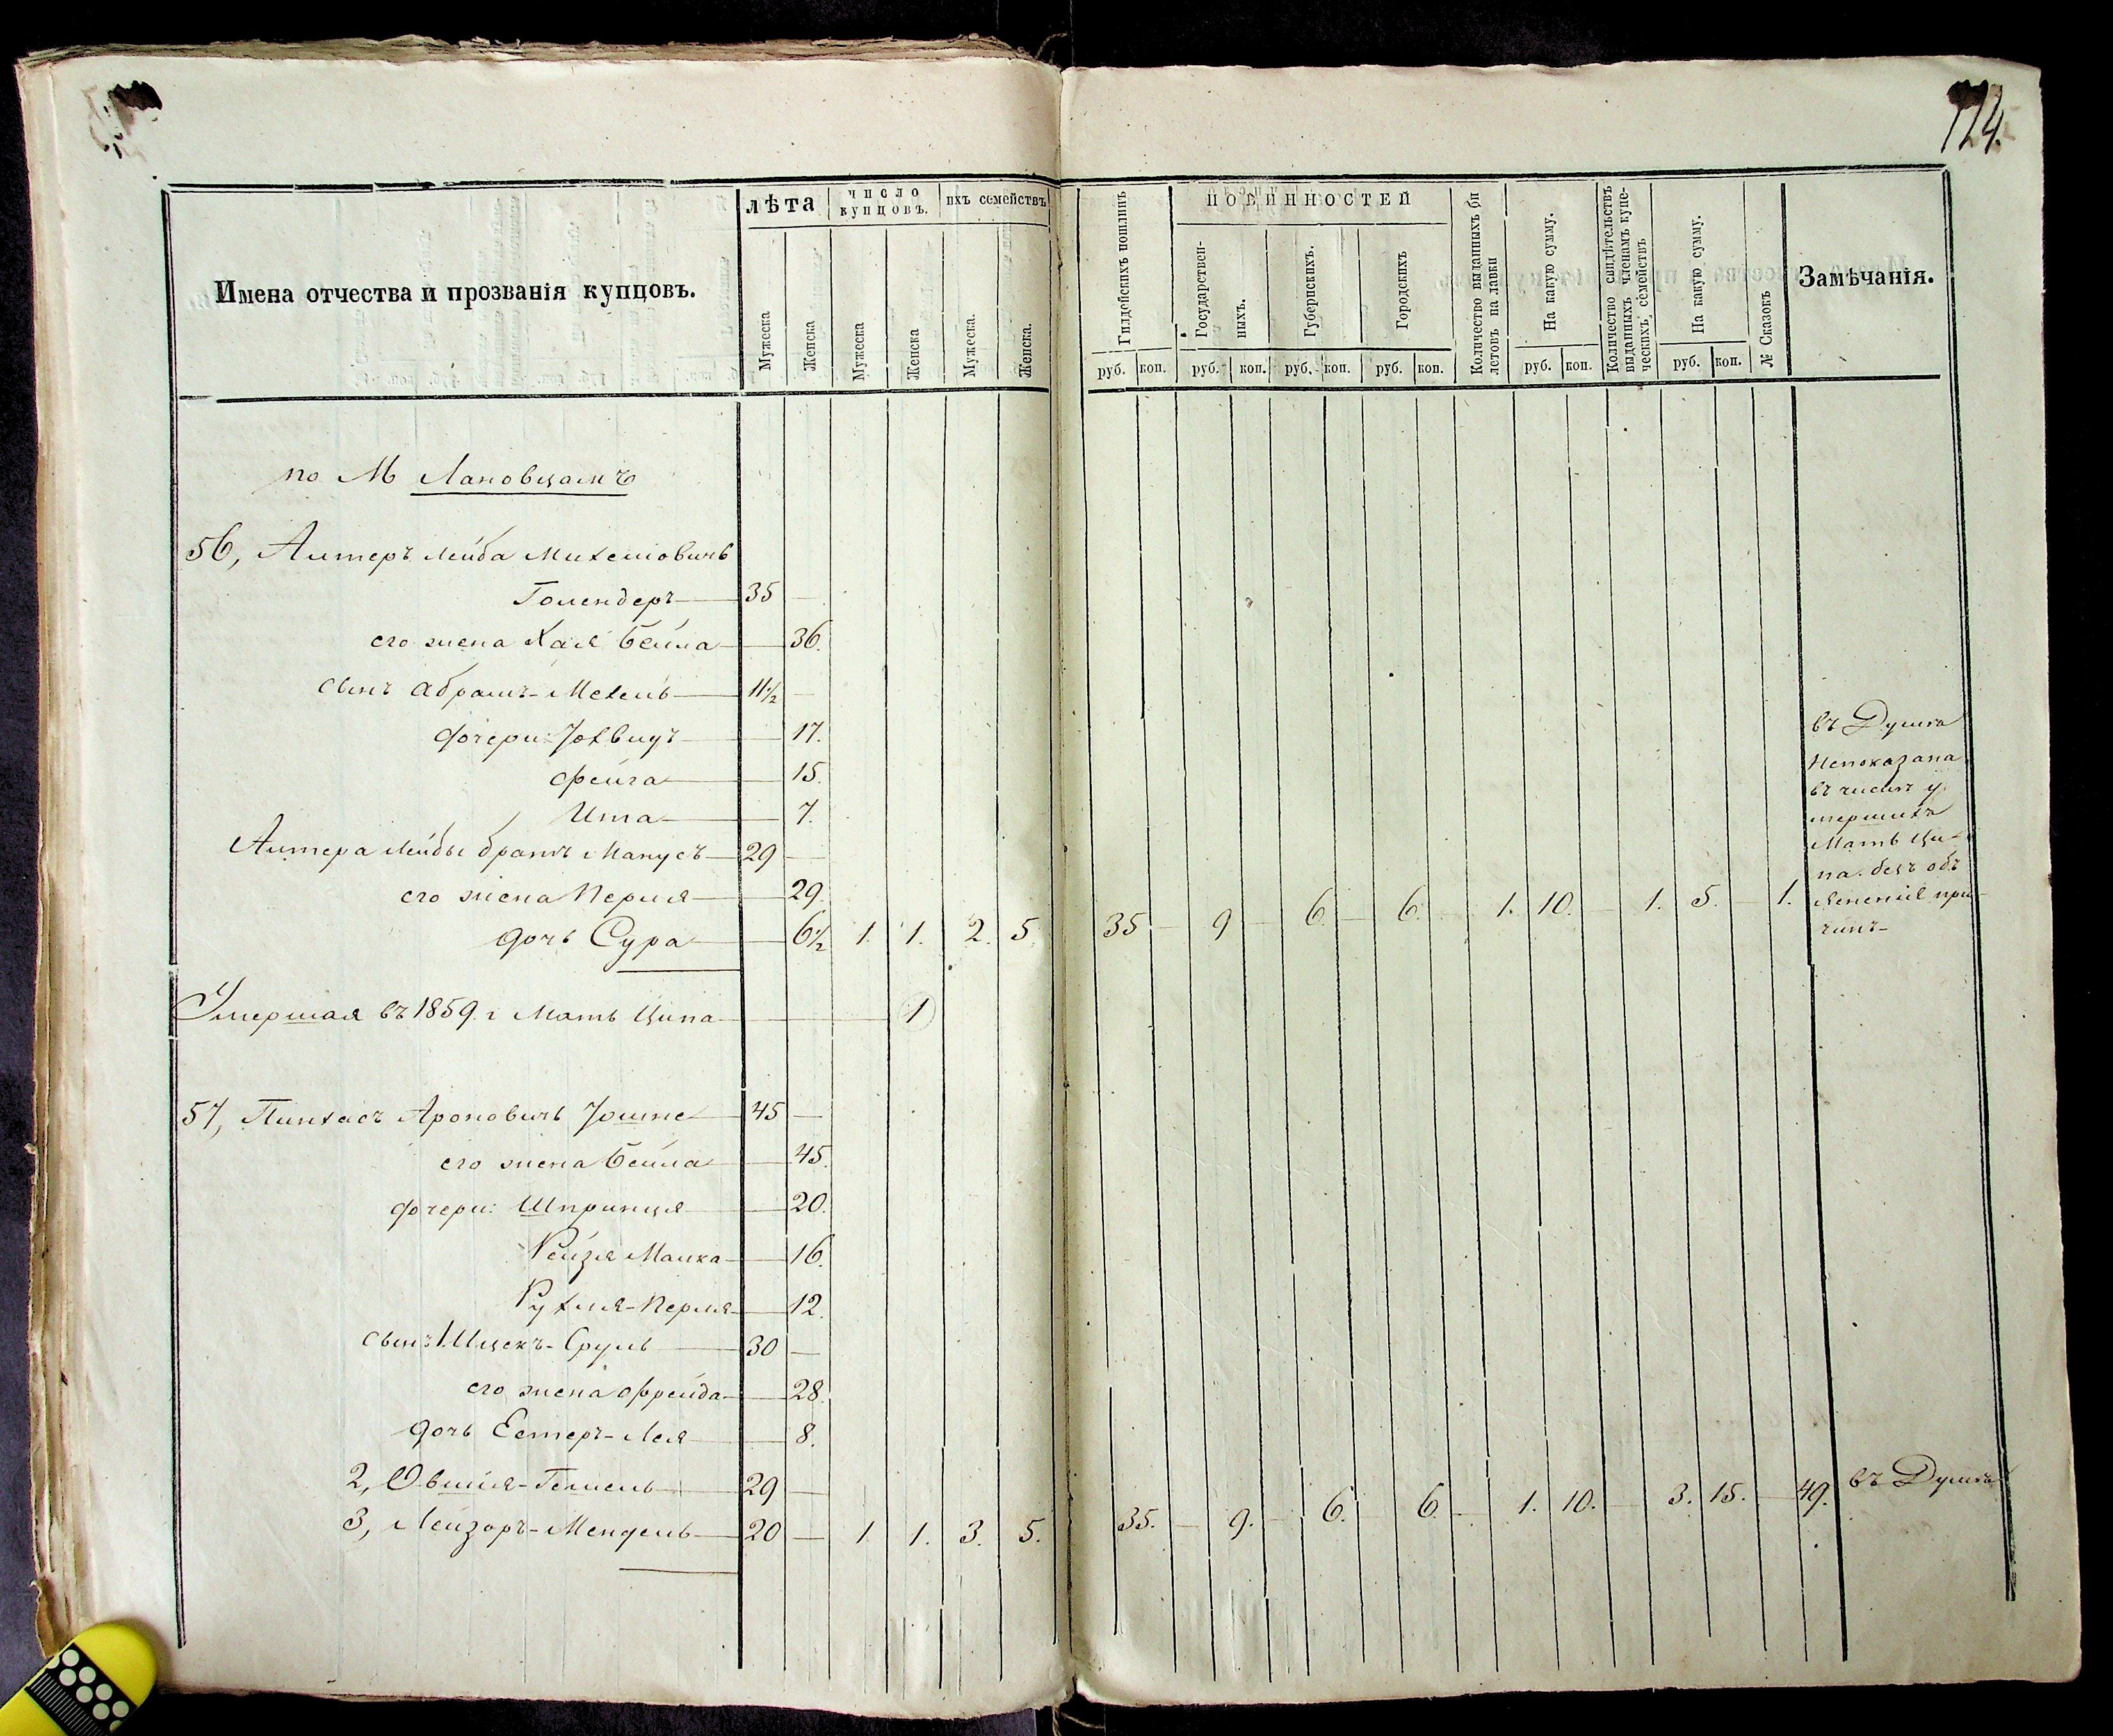 114.
Имена отчества и прозванія купцовъ.
лѣта
число купцовъ.
ихъ семействъ
Мужеска
Женска
Мужеска
Женска
Мужеска.
Женска.
Гилдейскихъ пошлинъ
ПОВИННОСТЕЙ
Государствен-
ныхъ.
Губернскихъ.
Городскихъ
Количество выданныхъ би
летовъ на лавки
На какую сумму.
Количество свидѣтельствъ
выданныхъ членамъ купе-
ческихъ семействъ
На какую сумму.
№ Сказокъ
Замѣчанія.
руб. коп. руб. коп. руб. коп. руб. коп. руб. коп. руб. коп.
по М Лановцамъ
56, Алтеръ Лейба Михелiовичь
Голендеръ 35 —
его жена Хая Бейла — 36.
сынъ Абрамъ-Мехель 11½ —
дочери: Іохвидъ — 17.
Фейга — 15.
Ита — 7.
Алтера Лейбы братъ Манусъ 29 —
его жена Перля — 29.
дочь Сура — 6½ 1. 1. 2. 5. 35 — 9 — 6. — 6. 1. 10. — 1. 5. — 1.
въ Думѣ
непоказана
въ числѣ у
мершихъ
Мать Ци-
па. безъ объ
ясненія при
чинъ—
Умершая въ 1859 г Мать Ципа 1
57, Пинхасъ Ароновичь Іошпе 45 —
его жена Бейла — 45.
дочери: Шпринця — 20.
Рейзя Малка — 16.
Рухля-Перля — 12.
сынъ: 1. Ицекъ-Сруль 30 —
его жена Фрейда — 28.
дочь Естеръ-Лея — 8.
2, Овшія-Гешель 29 —
3, Лейзоръ-Мендель 20 — 1. 1. 3. 5. 35. — 9. — 6. 6. — 1. 10. — 3. 15. — 49. въ Думѣ